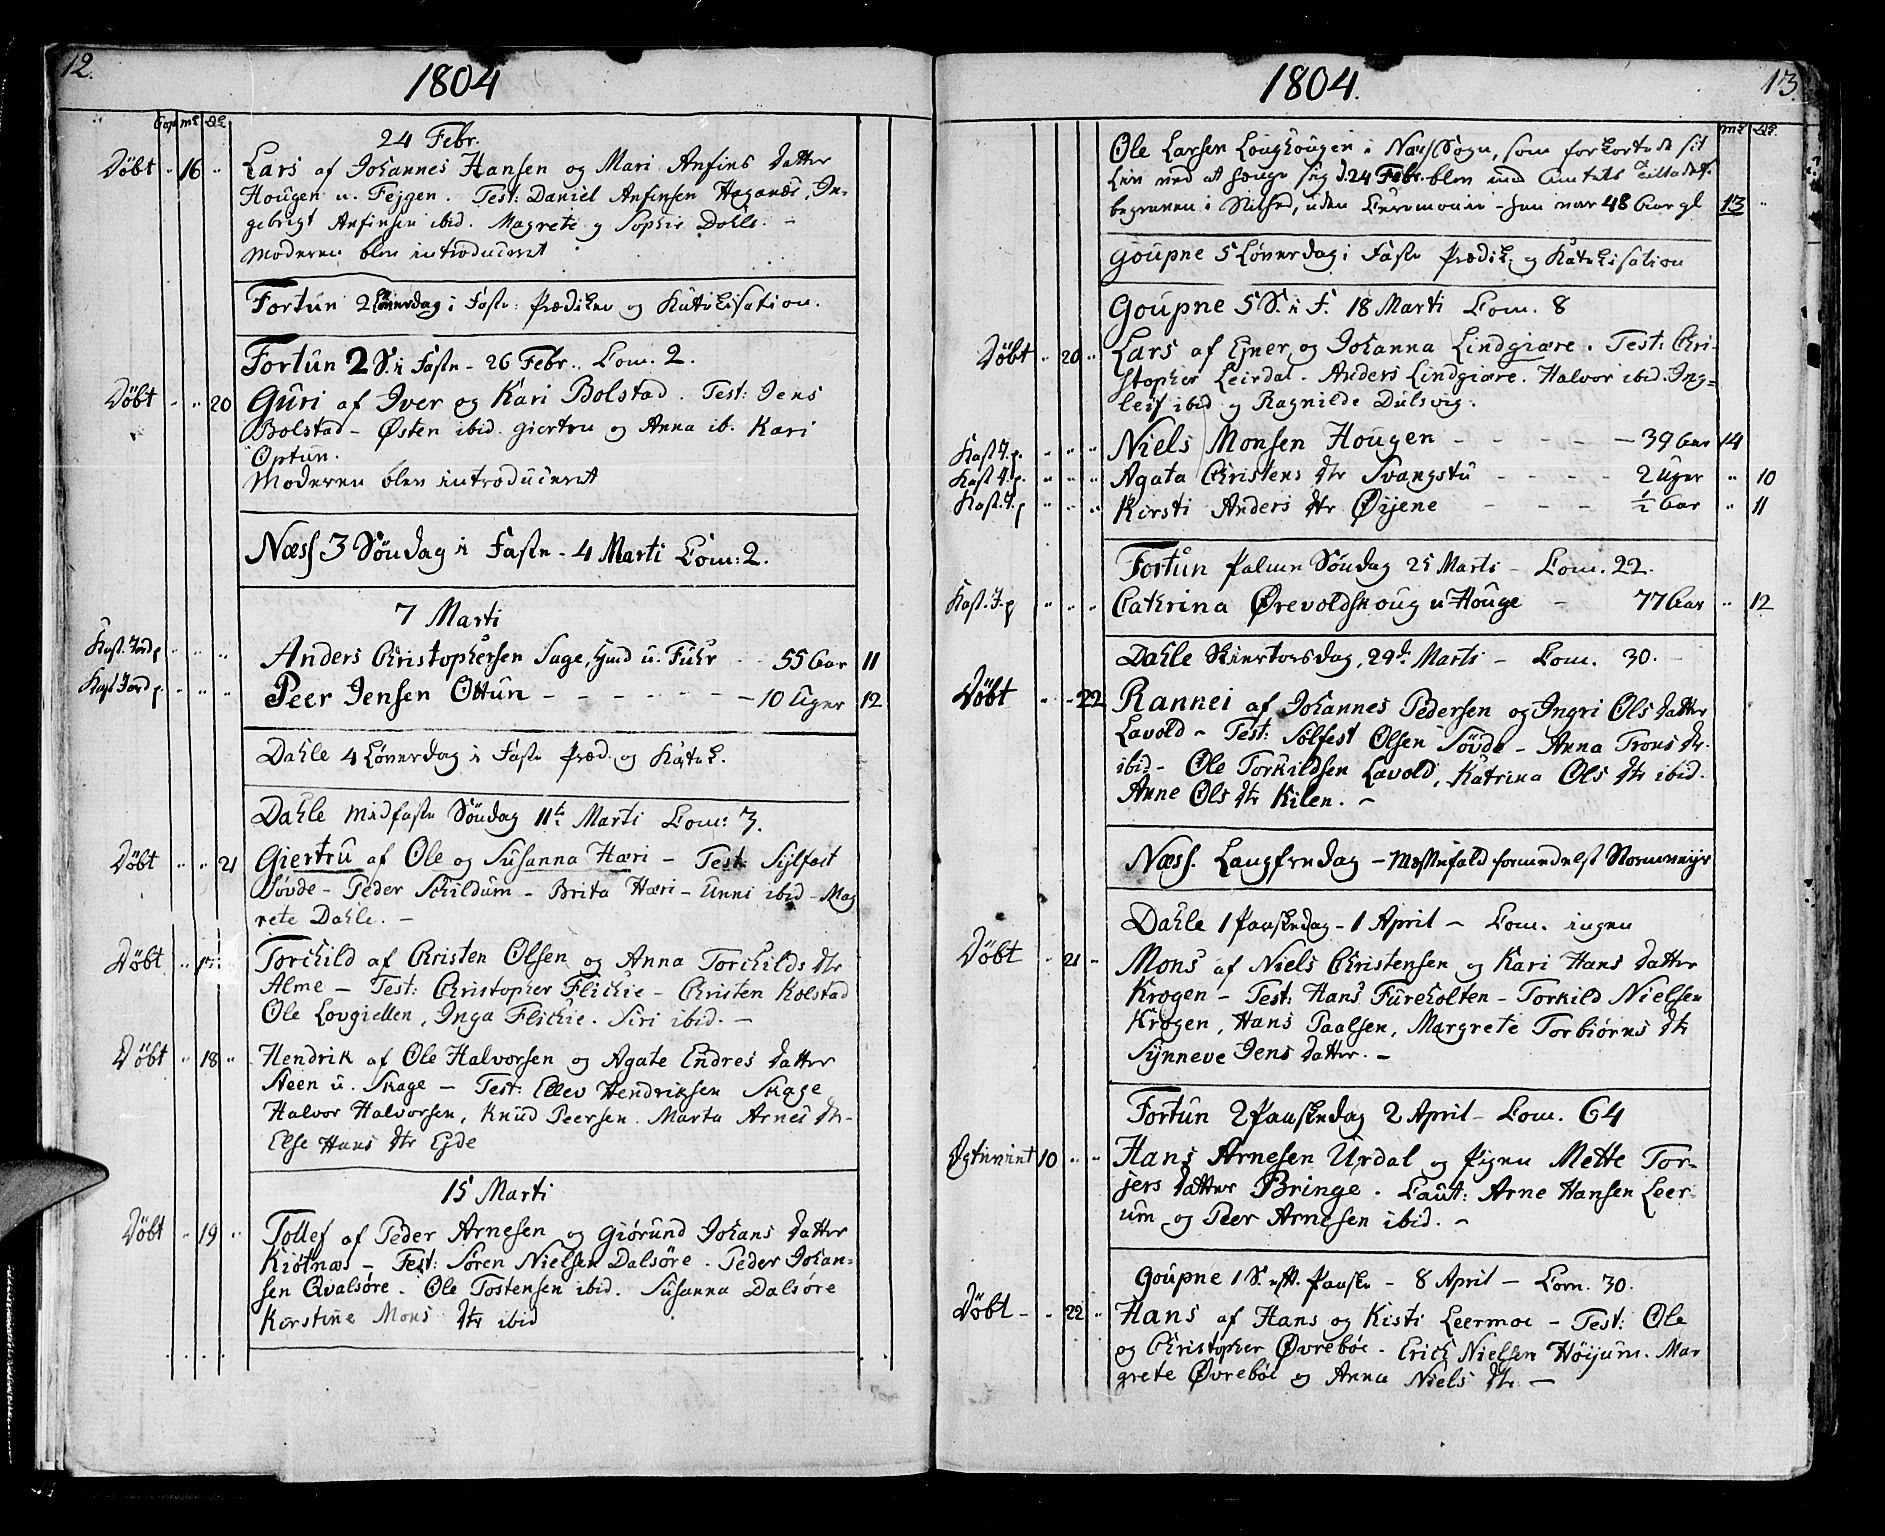 12.
1804
Cop. mk qk
24 Febr.
Döbt " 16 " Lars af Johannes Hansen og Mari Anfins datter
Hougen u. Fejgen. Test: Daniel Anfinsen Haganæs, In-
gebrigt Anfinsen ibid. Magrete g Sophie Dohls. -
Moderen blev introduceret
Fortun 2 Löverdag i Faste. Prædiken og Katekisation.
Fortun 2 S. i Faste - 26 Febr. Com. 2.
Döbt " " 20 Guri af Iver og Kari Bolstad. Test: Jens
Bolstad - Østen ibid. giertru og Anna ib. Kari
Optun.
Moderen blev introduceret
Næss 3 Söndag i Faste - 4 Marti Com: 2.
7 Marti
Kast. Jord p. " " " Anders Christophersen Sage, hmd u. Fuhr - 55 Aar 11
Kast Jord p. " " " Peer Jensen Ottun - - - - - - - 10 Uger 12
Dahle 4 Löverdag i Faste Præd. og Katek.
Dahle Midfaste Söndag 11te Marti Com: 3.
Döbt " " 21 Giertru af Ole og Susanna Hæri - Test: Sylfest
Søvde - Peder Schildum - Brita Hæri - Unni ibid - Mag
rete Dahle. -
Döbt " 17 " Torchild af Christen Olsen og Anna Torchilds dtr
Alme - Test: Christopher Flichie - Christen Kolstad
Ole Lovgiellen, Inga Flichie. Siri ibid. -
Döbt " 18 " Hendrik af Ole Halvorsen og Agate Endres datter
Steen u. Skage - Test: Ellev Hendriksen Skage
Halvor Halvorsen, Knud Peersen. Marta Arnes dtr -
Else Hans dtr Ejde
15 Marti
Döbt " 19 " Tollef af Peder Arnesen og Giörund Johans datter
Kiötnæs - Test: Sören Nielsen Dalsöre. Peder Johan-
sen Qvalsöre. Ole Tostensen ibid. Susanna Dalsöre
Kirstine Mons dtr ibid
1804.
13.
mk qk.
Ole Larsen Loughougen i Næss Sogn, som forkortede sit
Liv ved at hænge sig d. 24 Febr. blev med Amtets tilladelse
begraven i Stilhed, uden Ceremonie - han var 48 Aar gl 13 "
Goupne 5 Löverdag i Faste Prædik. og Katekisation
Goupne 5 S. i F. 18 Marti Com. 8
Döbt " 20 " Lars af Ejner og Johanna Lindgiære. Test: Chri-
stopher Leirdal. Anders Lindgiære. Halvor ibid. Ing-
leif ibid g Ragnilde Dulsvig.
Kast J. p. " " " Niels Monsen Hougen - - - - - 39 Aar 14
Kast J. p. " " " Agata Christens dtr Svangstu - - - - 2 Uger " 10
Kast. J. p " " " Kirsti Anders dtr Øijene - - - ½ Aar " 11
Fortun Palme Söndag 25 Marts - Com. 22.
Kast. J. p " " " Cathrina Ørevoldskoug u Houge - 77 Aar " 12
Dahle Skiertorsdag, 29de Marti - Com. 30. -
Döbt " " 22 Rannei af Johannes Pedersen og Ingri Ols datter
Lavold - Test: Sölfest Olsen Søvde - Anna Trons dr.
ibid - Ole Torkildsen Lavold, Katrina Ols dtr ibid.
Anne Ols dtr Kilen. -
Næss. Langfredag - Messefald formedelst Stormveijr
Dahle 1 Paaskedag - 1 April - Com. ingen
Döbt " 21 " Mons af Niels Christensen og Kari Hans datter
Krogen - Test: Hans Fureholten - Torkild Nielsen
Krogen, Hans Paalsen, Margrete Torbiørns dtr
Synneve Jens datter. -
Fortun 2 Paaskedag 2 April - Com. 64
10 " " Hans Arnesen Urdal og Pigen Mette Tor-
jers datter Bringe. Caut: Arne Hansen Leer-
um og Peer Arnesen ibid. -
Goupne 1 S. eft. Paaske - 8 April - Com. 30.
Döbt - " 22 " Hans af Hans og Kisti Leermoe - Test: Ole
og Christopher Øvrebøe - Erich Nielsen Höijum. Mar
grete Øvrebøe og Anna Niels dtr -